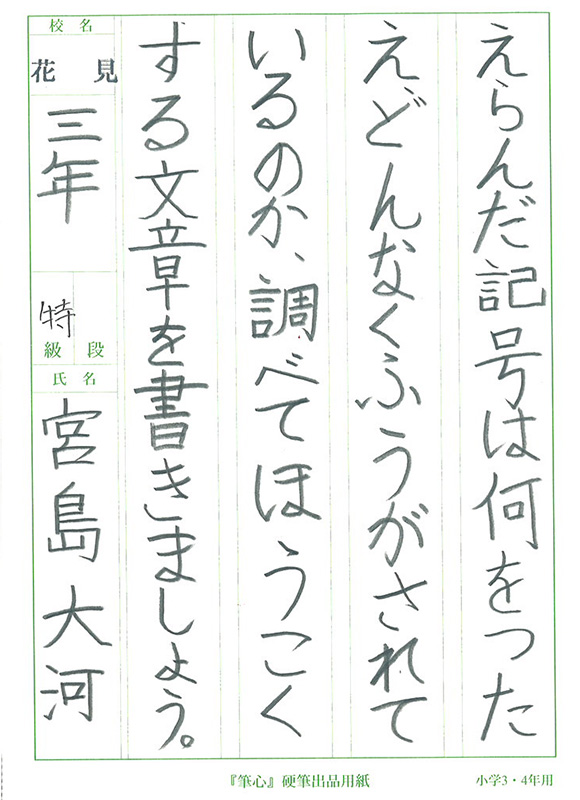 えらんだ記号は何をつた
えどんなくふうがされて
いるのか、調べてほうこく
する文章を書きましょう。
校名
花見
三年
特
級 段
氏名
宮島大河
『筆心』硬筆出品用紙
小学3・4年用